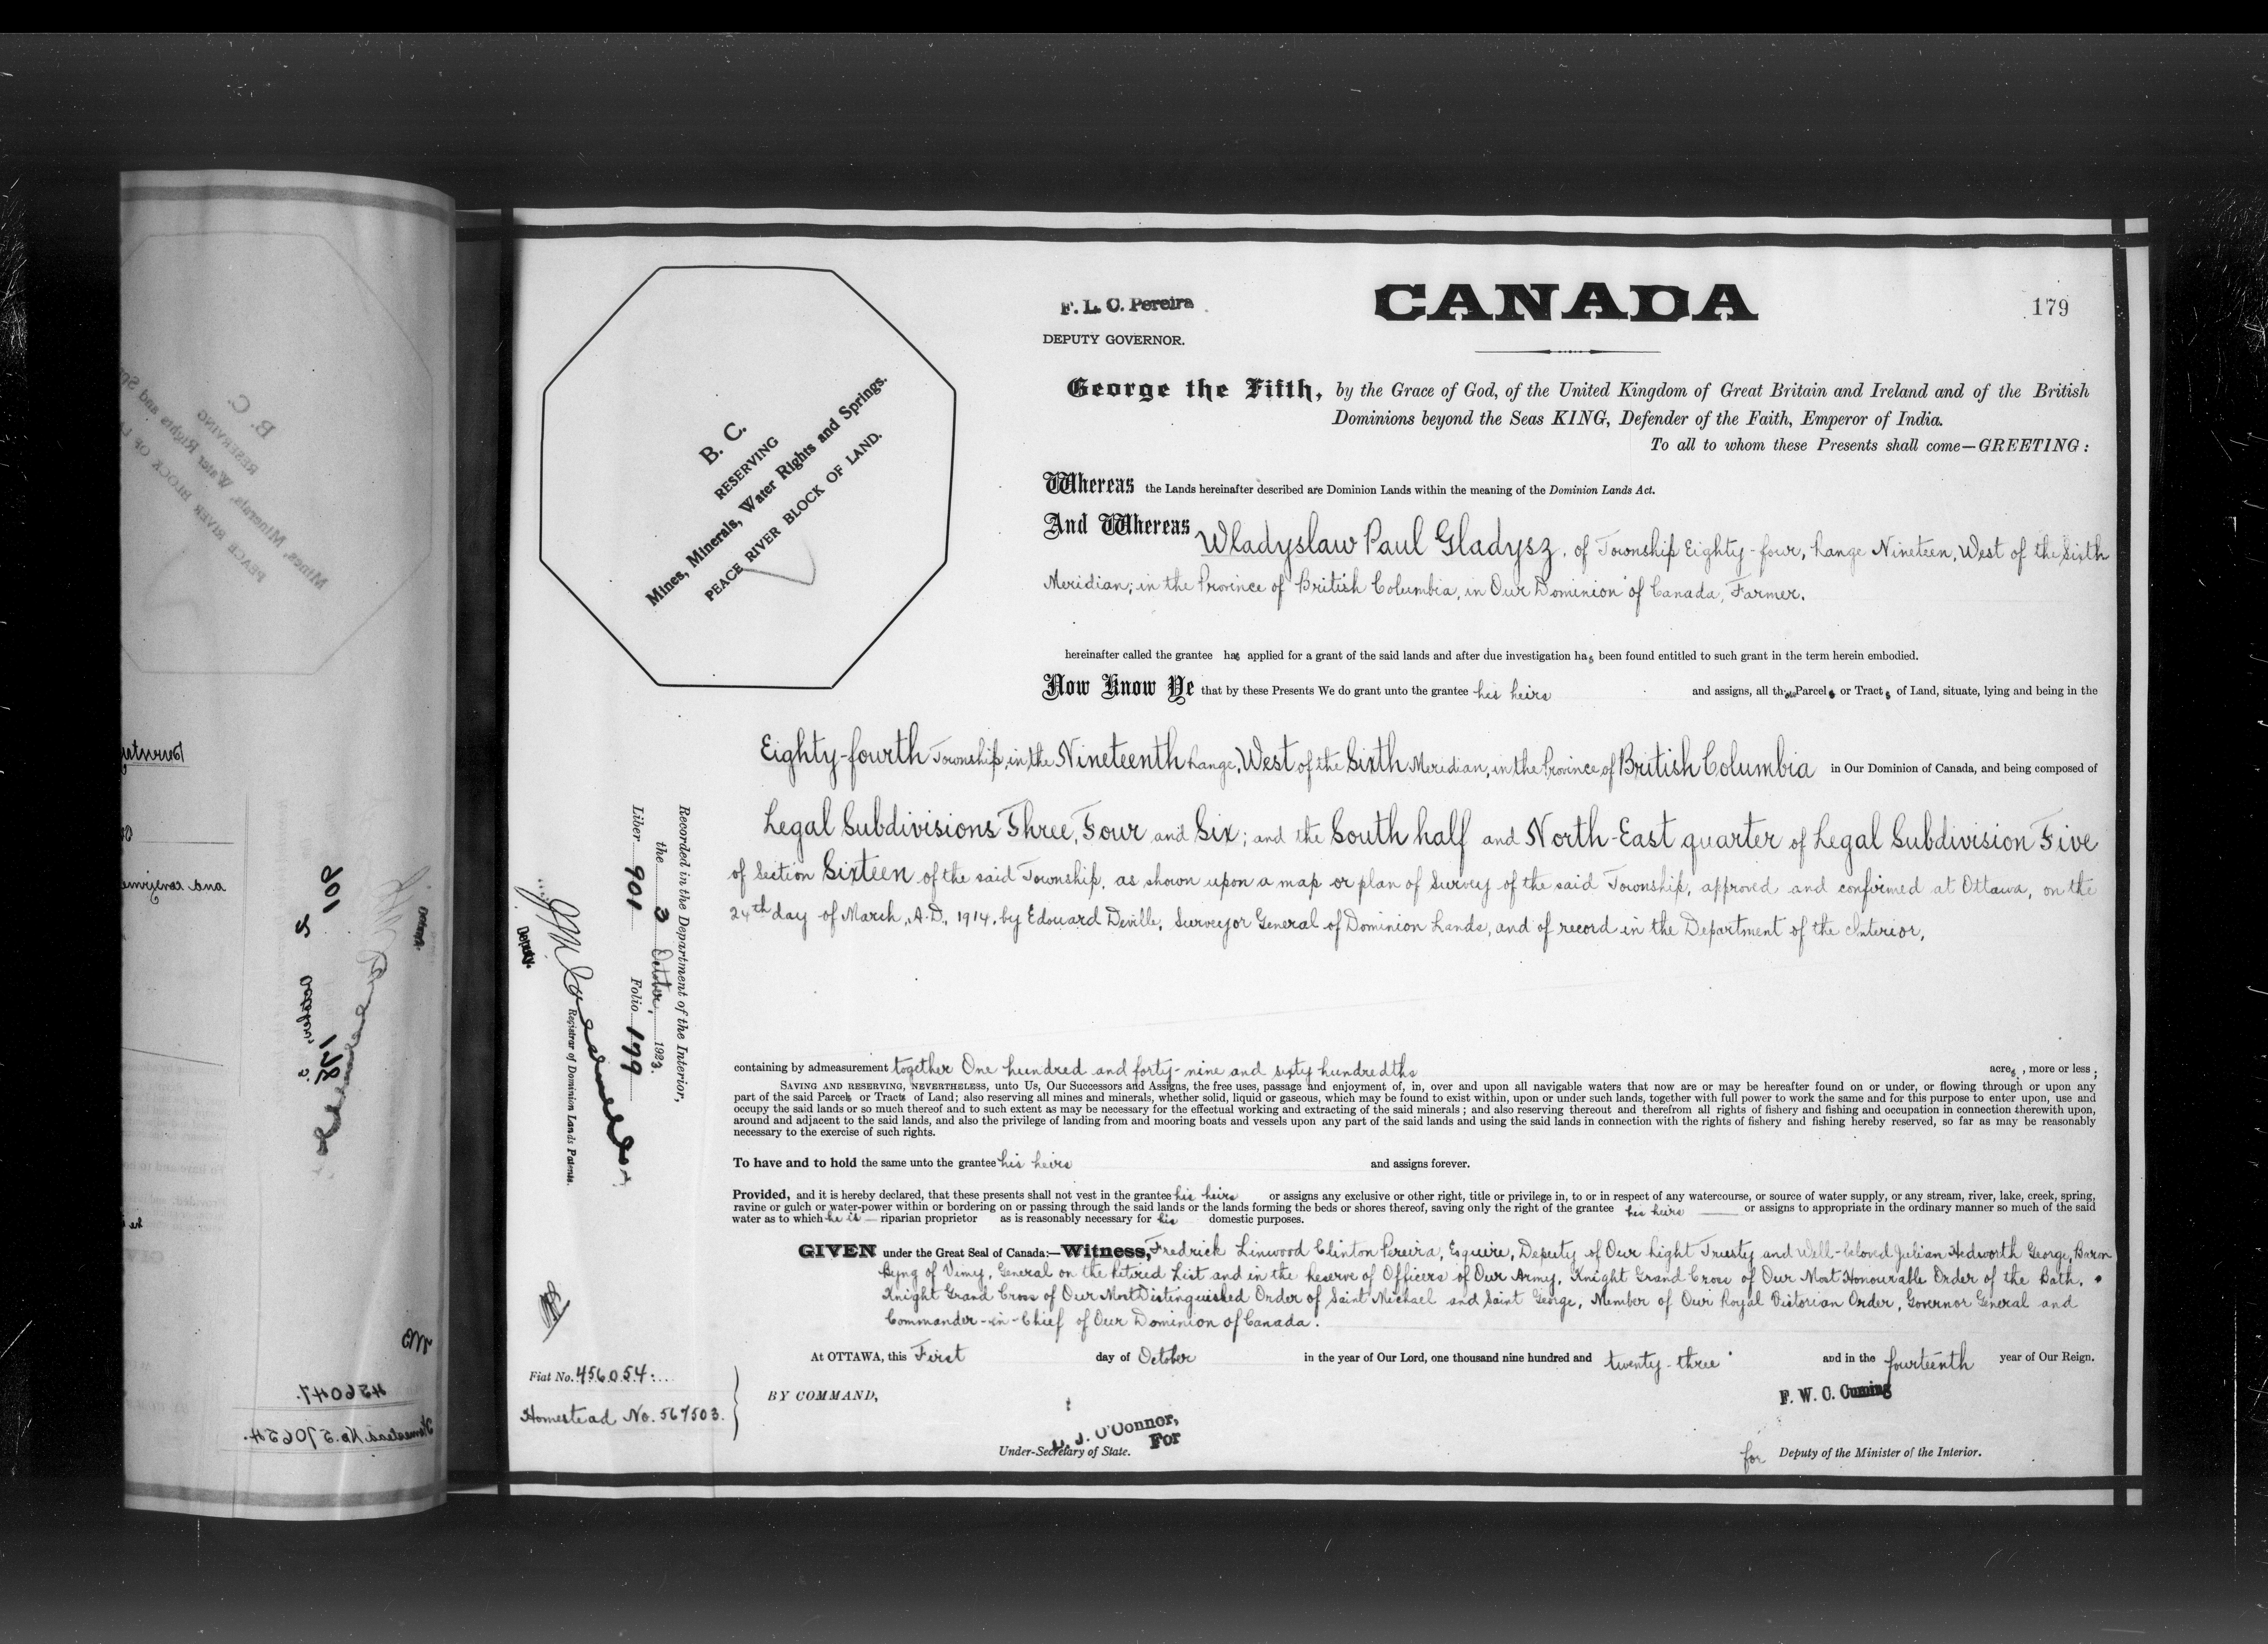 F. L. C. Pereira
DEPUTY GOVERNOR.
CANADA
179
George the Fifth, by the Grace of God, of the United Kingdom of Great Britain and Ireland and of the British
Dominions beyond the Seas KING, Defender of the Faith, Emperor of India.
To all to whom these Presents shall come—GREETING:
B. C.
RESERVING
Mines, Minerals, Water Rights and Springs.
PEACE RIVER BLOCK OF LAND.
Whereas the Lands hereinafter described are Dominion Lands within the meaning of the Dominion Lands Act.
And Whereas Wladyslaw Paul Gladysz, of Township Eighty-four, Range Nineteen, West of the Sixth
Meridian; in the Province of British Columbia, in Our Dominion of Canada, Farmer.
hereinafter called the grantee has applied for a grant of the said lands and after due investigation has been found entitled to such grant in the term herein embodied.
Now Know Ye that by these Presents We do grant unto the grantee his heirs and assigns, all those Parcels or Tracts of Land, situate, lying and being in the
Eighty-fourth Township, in the Nineteenth Range, West of the Sixth Meridian, in the Province of British Columbia in Our Dominion of Canada, and being composed of
Legal Subdivisions Three, Four and Six; and the South half and North-East quarter of Legal Subdivision Five
of Section Sixteen of the said Township, as shown upon a map or plan of Survey of the said Township, approved and confirmed at Ottawa, on the
24th day of March, A.D. 1914, by Edouard Deville, Surveyor General of Dominion Lands, and of record in the Department of the Interior,
containing by admeasurement together One hundred and forty-nine and sixty hundredths acres, more or less;
SAVING AND RESERVING, NEVERTHELESS, unto Us, Our Successors and Assigns, the free uses, passage and enjoyment of, in, over and upon all navigable waters that now are or may be hereafter found on or under, or flowing through or upon any
part of the said Parcels or Tracts of Land; also reserving all mines and minerals, whether solid, liquid or gaseous, which may be found to exist within, upon or under such lands, together with full power to work the same and for this purpose to enter upon, use and
occupy the said lands or so much thereof and to such extent as may be necessary for the effectual working and extracting of the said minerals; and also reserving thereout and therefrom all rights of fishery and fishing and occupation in connection therewith upon,
around and adjacent to the said lands, and also the privilege of landing from and mooring boats and vessels upon any part of the said lands and using the said lands in connection with the rights of fishery and fishing hereby reserved, so far as may be reasonably
necessary to the exercise of such rights.
To have and to hold the same unto the grantee his heirs and assigns forever.
Provided, and it is hereby declared, that these presents shall not vest in the grantee his heirs or assigns any exclusive or other right, title or privilege in, to or in respect of any watercourse, or source of water supply, or any stream, river, lake, creek, spring,
ravine or gulch or water-power within or bordering on or passing through the said lands or the lands forming the beds or shores thereof, saving only the right of the grantee his heirs or assigns to appropriate in the ordinary manner so much of the said
water as to which he is riparian proprietor as is reasonably necessary for his domestic purposes.
GIVEN under the Great Seal of Canada:—Witness, Fredrick Linwood Clinton Pereira, Esquire, Deputy of Our Right Trusty and Well-beloved Julian Hedworth George, Baron
Byng of Vimy, General on the Retired List and in the Reserve of Officers of Our Army, Knight Grand Cross of Our Most Honourable Order of the Bath,
Knight Grand Cross of Our Most Distinguished Order of Saint Michael and Saint George, Member of Our Royal Victorian Order, Governor General and
Commander-in-Chief of Our Dominion of Canada.
At OTTAWA, this First day of October in the year of Our Lord, one thousand nine hundred and twenty-three and in the fourteenth year of Our Reign.
BY COMMAND,
F. W. C. Cuming
J. O'Connor,
For
Under-Secretary of State.
for Deputy of the Minister of the Interior.
Recorded in the Department of the Interior,
the 3 October, 1923.
Liber 901 Folio 179
Registrar of Dominion Lands Patents.
Deputy.
Fiat No. 456054
Homestead No. 567503.